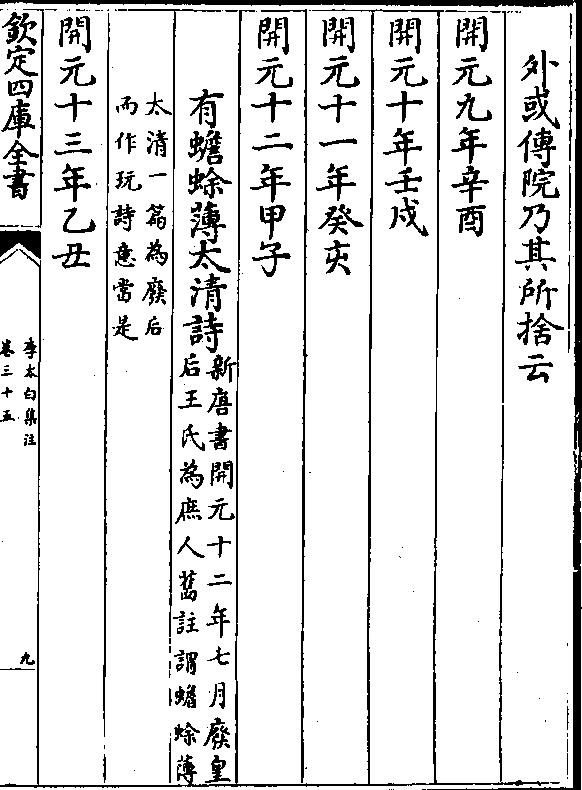 外或傳院乃其所捨云
開元九年辛酉
開元十年壬戍
開元十一年癸亥
開元十二年甲子
有蟾蜍薄太清詩新唐書開元十二年七月廢皇
后王氏為庶人舊註謂蟾蜍薄
太清一篇為廢后
而作玩詩意當是
開元十三年乙丑
欽定四庫全書
李太白集注
卷三十五
九